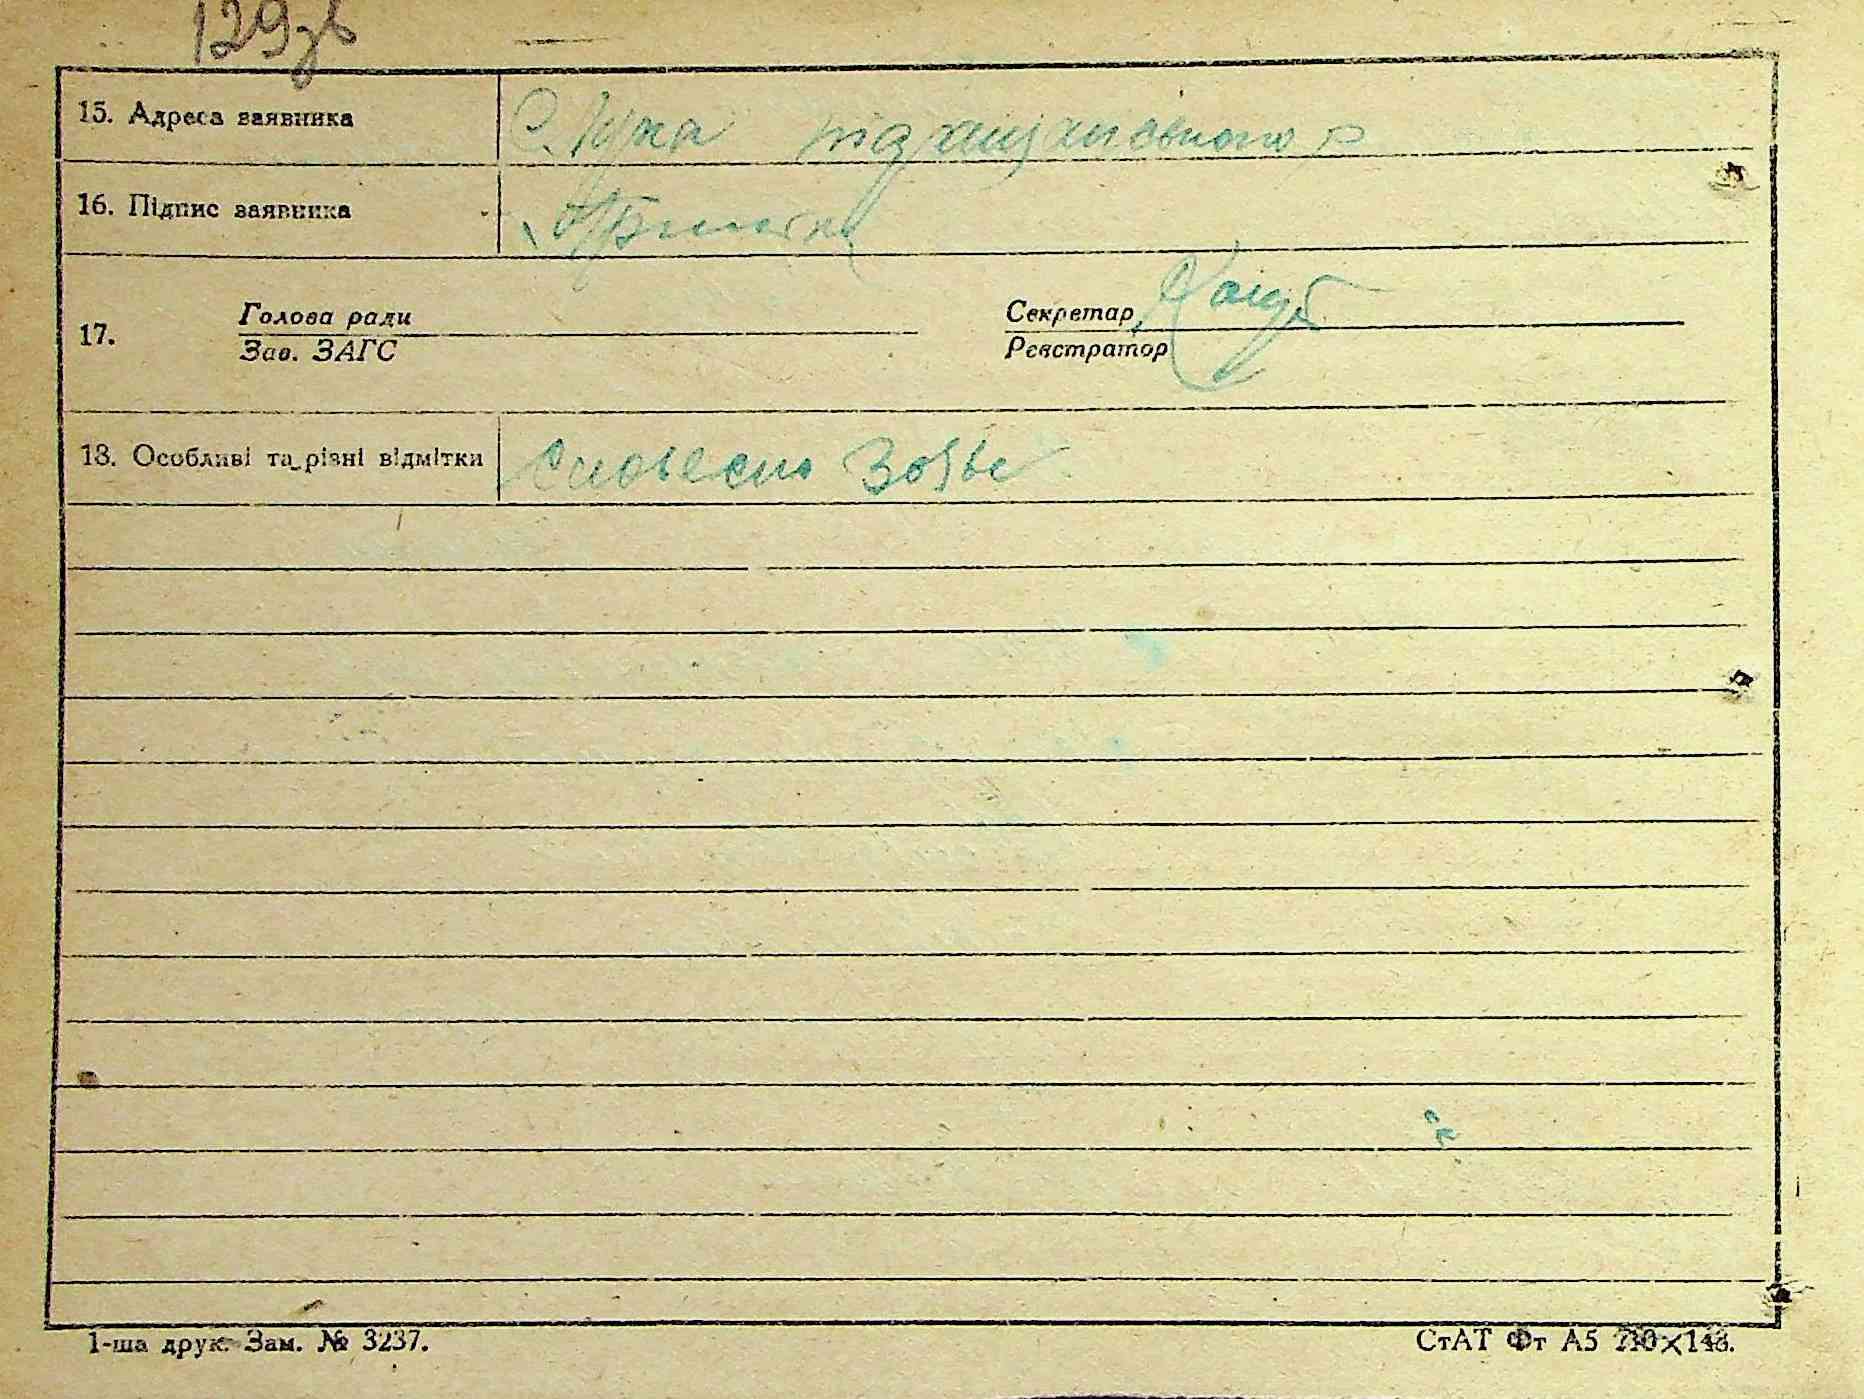 129зв
15. Адреса заявника С. Лука
16. Підпис заявника
17. Голова ради Секретар
Зав. ЗАГС Реєстратор
18. Особливі та різні відмітки Словесно
1-ша друк. Зам. № 3237. СтАТ Фт А5 210×148.